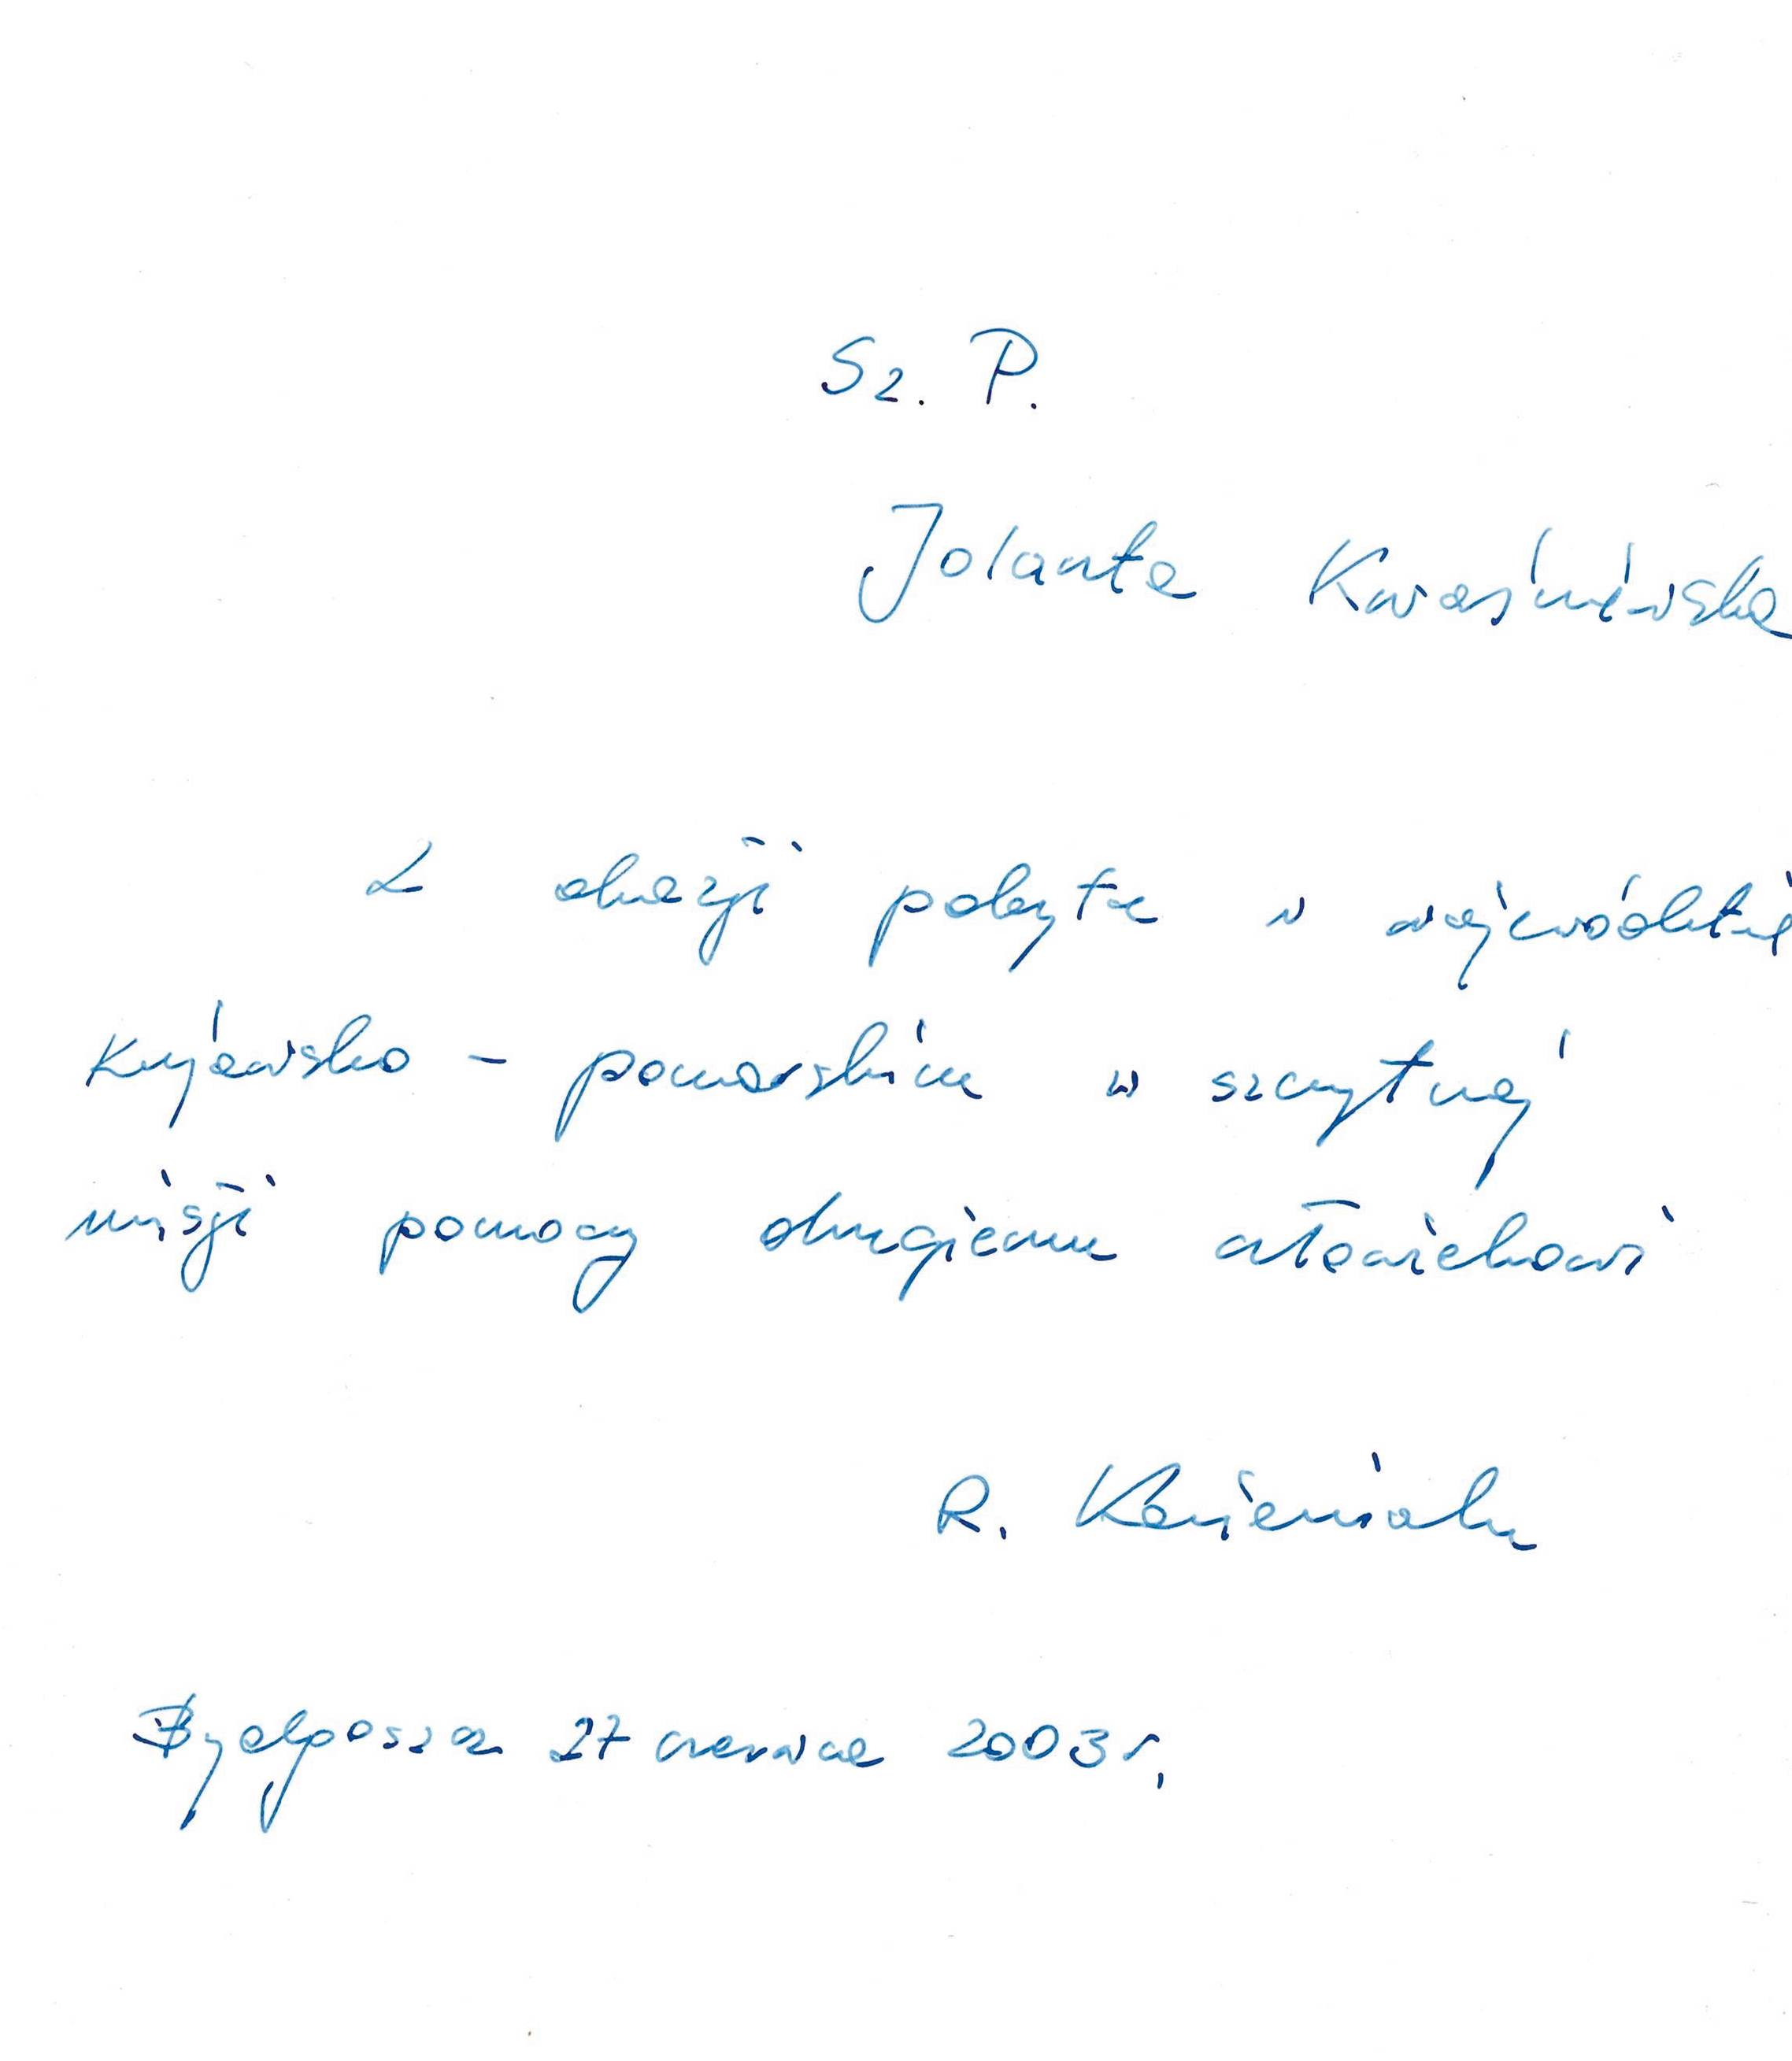 Sz. P.
Jolanta Kwaśniewska
Z okazji pobytu w województwie
Kujawsko - pomorskim w szczytnej
misji pomocy drugiemu człowiekowi
R. Kozieniak
Bydgoszcz 27 czerwca 2003 r.